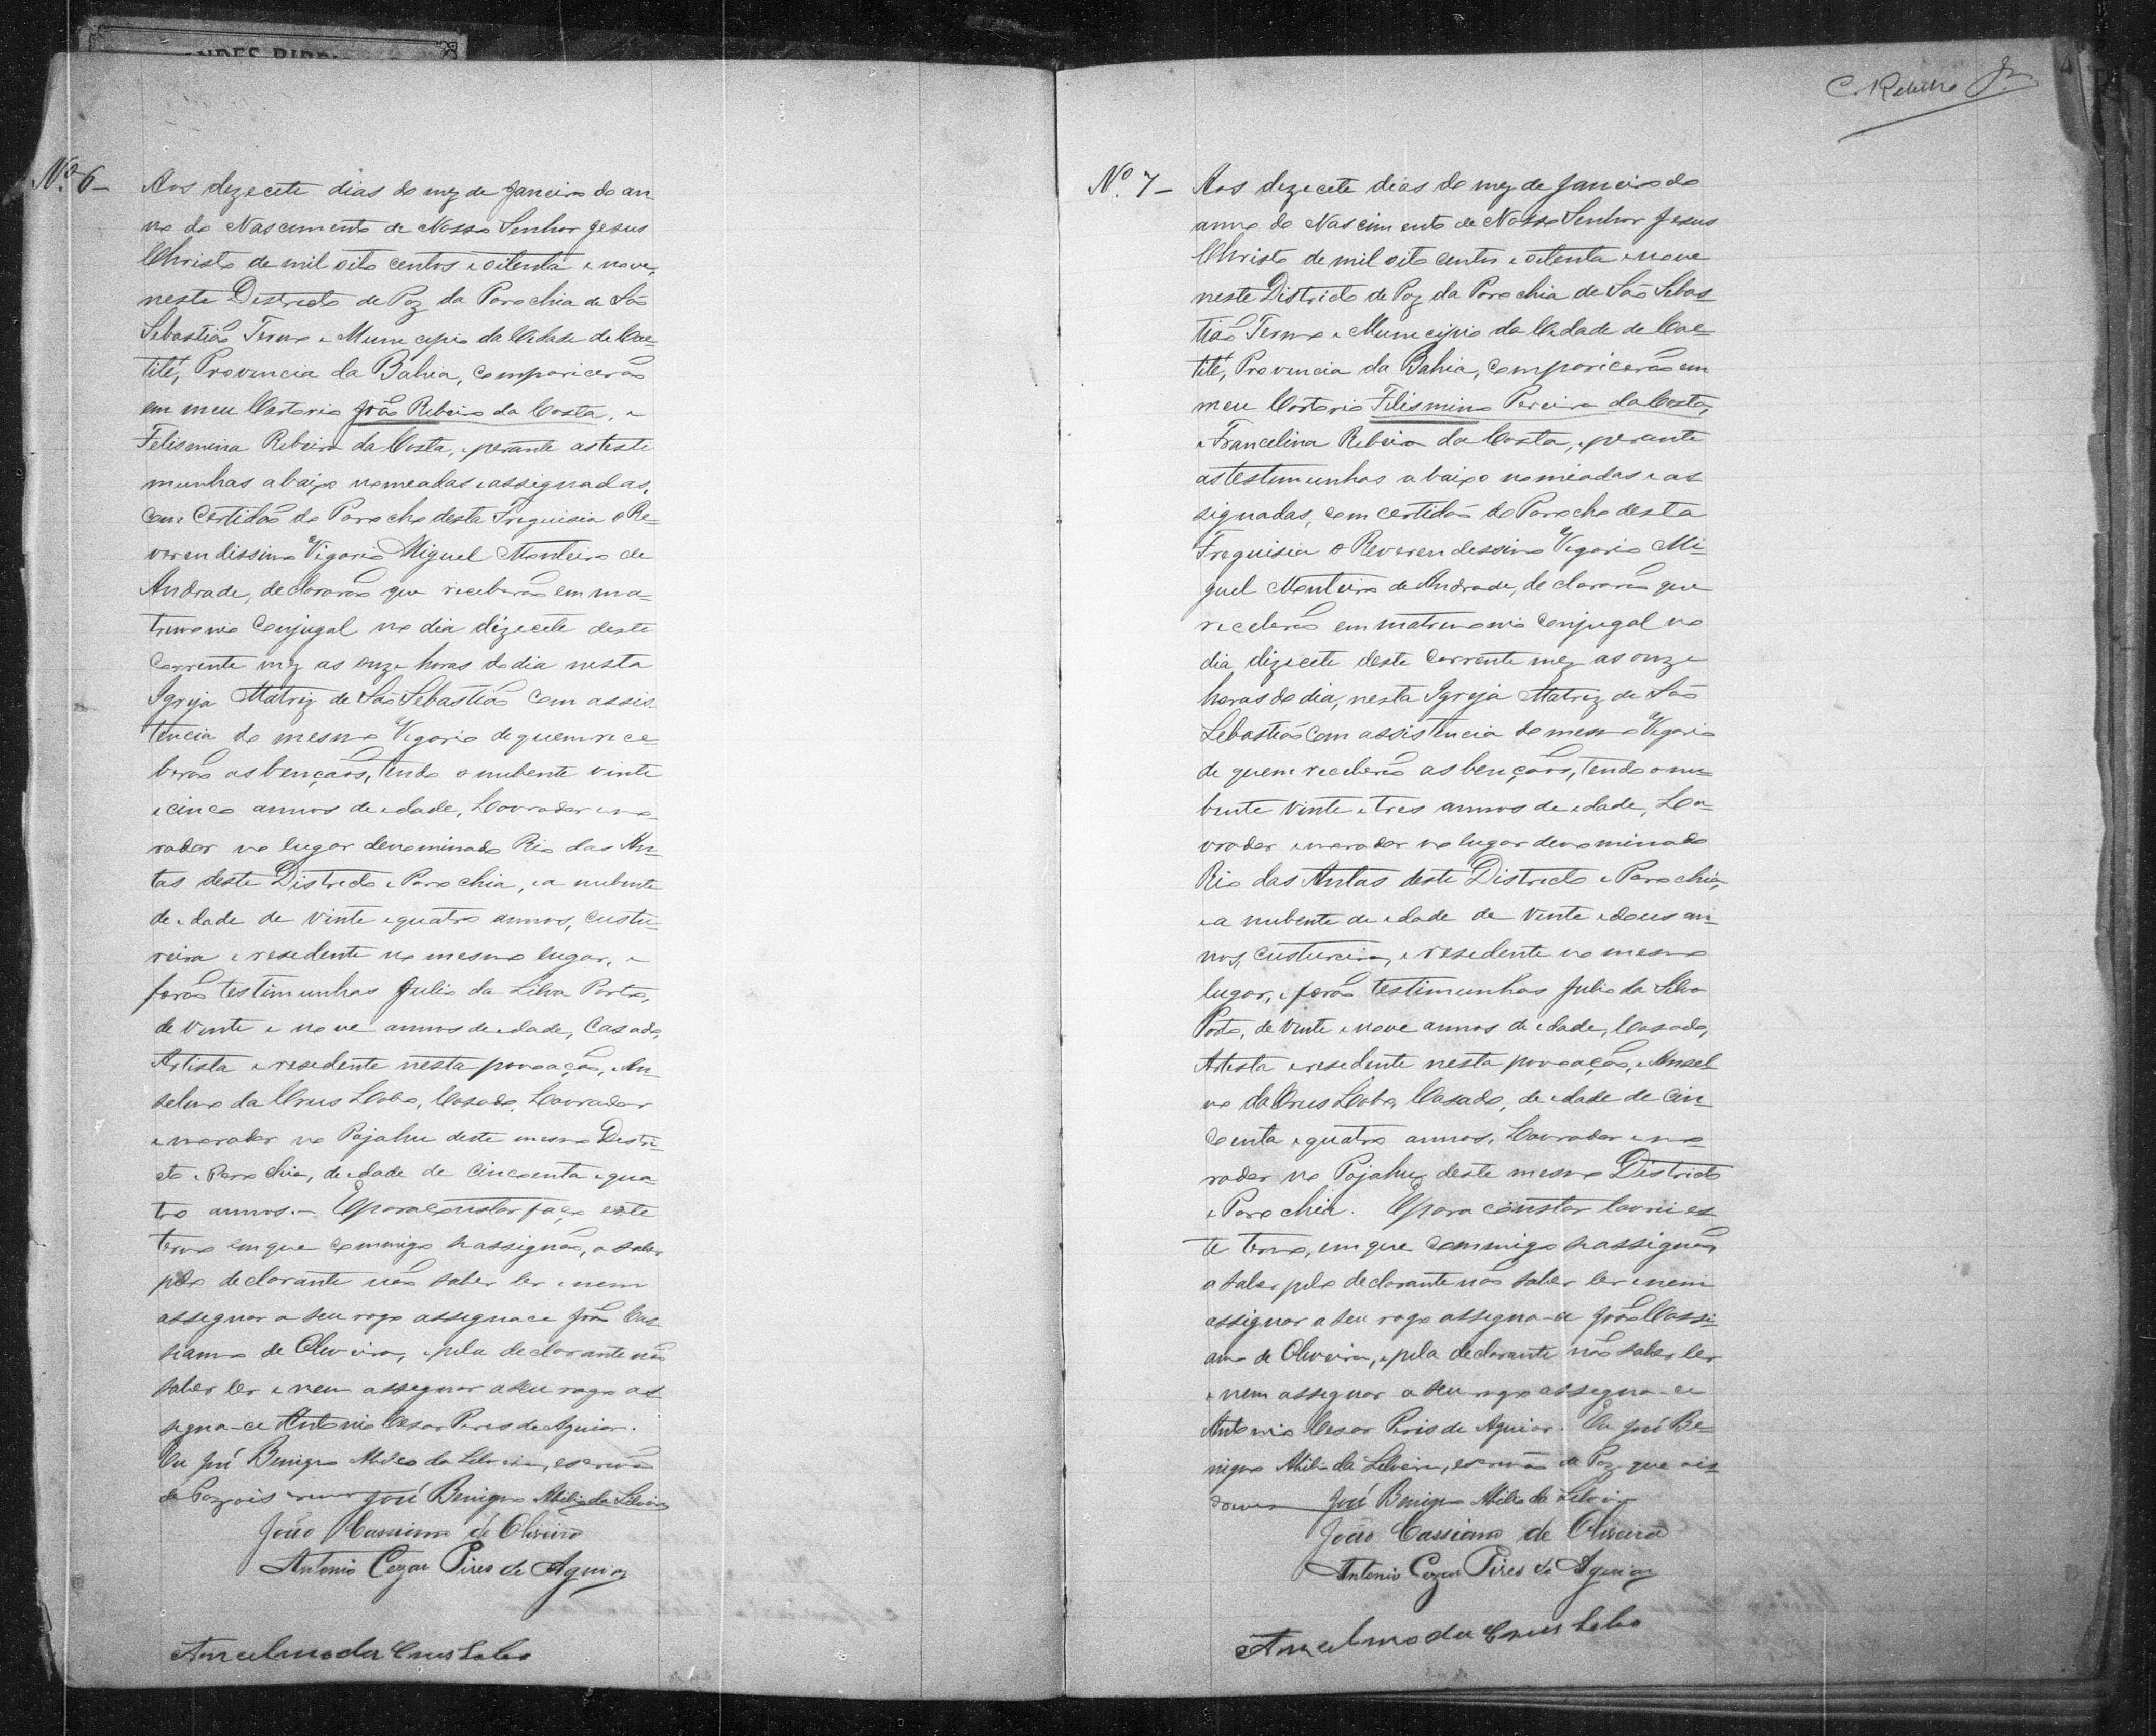 C. Ribeiro Jr.
Nº 6 - Aos dezecete dias do mez de Janeiro do an
no do Nascimento de Nosso Senhor Jesus
Christo de mil oito centos e oitenta e nove,
neste Destricto de Paz da Parochia de São
Sebastião Termo e Municipio da Cidade de Cae-
tité, Provincia da Bahia, compariceraõ
em meu Cartorio João Ribeiro da Costa, e
Felismina Ribeiro da Costa, e perante as teste
munhas abaixo nomeadas e assignadas,
com Certidaõ do Parocho desta Freguisia o Re-
verendissimo Vigario Miguel Monteiro de
Andrade, declararaõ que receberaõ em ma-
trimonio Conjugal no dia dizecete deste
Corrente mez as onze horas do dia nesta
Igreja Matriz de São Sebastião com assis-
tencia do mesmo Vigario de quem rece-
beraõ as bençaõs, tendo o nubente vinte
e cinco annos de idade, Lavrador e mo-
rador no lugar denominado Rio das An-
tas deste Distrcto e Parochia, e a nubente
de idade de vinte e quatro annos, custu-
reira e residente no mesmo lugar, e
foraõ testimunhas Julio da Silva Porto,
de vinte e nove annos de idade, Casado,
Artista e residente nesta povoaçaõ, e An-
selmo da Crus Lobo, Casado, Lavrador
e morador no Pajahu deste mesmo Destri-
cto e Parochia, de idade de cincoenta e qua-
tro annos. - E para constar faço este
termo em que commigo se assignaõ, a saber
pelo declarante naõ saber ler e nem
assignar a seu rogo assignace João Cas
siano de Oliveira, e pela declarante naõ
saber ler e nem assignar a seu rogo as
signa-ce Antonio Cesar Pires de Aguiar.
Eu José Benigno Abilio da Silveira, escrivaõ
de Paz o is José Benigno Abilio da Silveira
João Cassiano de Oliveira
Antonio Cezar Pires de Aguiar
Ancelmo da Crus Lobo
Nº 7 - Aos dezecete dias do mez de Janeiro do
anno do Nascimento de Nosso Senhor Jesus
Christo de mil oito centos e oitenta e nove
neste Districto de Paz da Parochia de São Sebas-
tião Termo e Municipio da Cidade de Cae-
tité, Provincia da Bahia, compariceraõ em
meu Cartorio Felismino Pereira da Costa,
e Francelina Ribeiro da Costa, e perante
as testemunhas abaixo nomeadas e as
signadas, com certidaõ do Parocho desta
Freguisia o Reverendessimo Vigario Mi-
guel Monteiro de Andrade, declararaõ que
receberaõ em matrimonio conjugal no
dia dizecete deste corrente mez as onze
horas do dia, nesta Igreja Matriz de São
Sebastião com assistencia do mesmo Vigario
de quem receberaõ as bençaõs, tendo o nu-
bente vinte e tres annos de idade, La-
vrador e morador no lugar denominado
Rio das Antas deste Districto e Parochia,
e a nubente de idade de vinte e dous an-
nos, custureira, e residente no mesmo
lugar, e foraõ testimunhas Julio da Silva
Porto, de vinte e nove annos de idade, Casado,
Artista e residente nesta povoaçaõ, e Ansel
mo da Crus Lobo, Casado, de idade de cin-
coenta e quatro annos, Lavrador e mo-
rador no Pajahu, deste mesmo Districto
e Parochia. E para constar lavrei es-
te termo, em que commigo se assignaõ
a saber pelo declarante naõ saber ler e nem
assignar a seu rogo assigna-ce João Cassi-
ano de Oliveira, e pela declarante naõ saber ler
e nem assignar a seu rogo assigna-ce
Antonio Cesar Piris de Aguiar. Eu José Be-
nigno Abilio da Silveira, escrivaõ de Paz que
José Benigno Abilio da Silveira
João Cassiano de Oliveira
Antonio Cezar Pires de Aguiar
Ancelmo da Crus Lobo